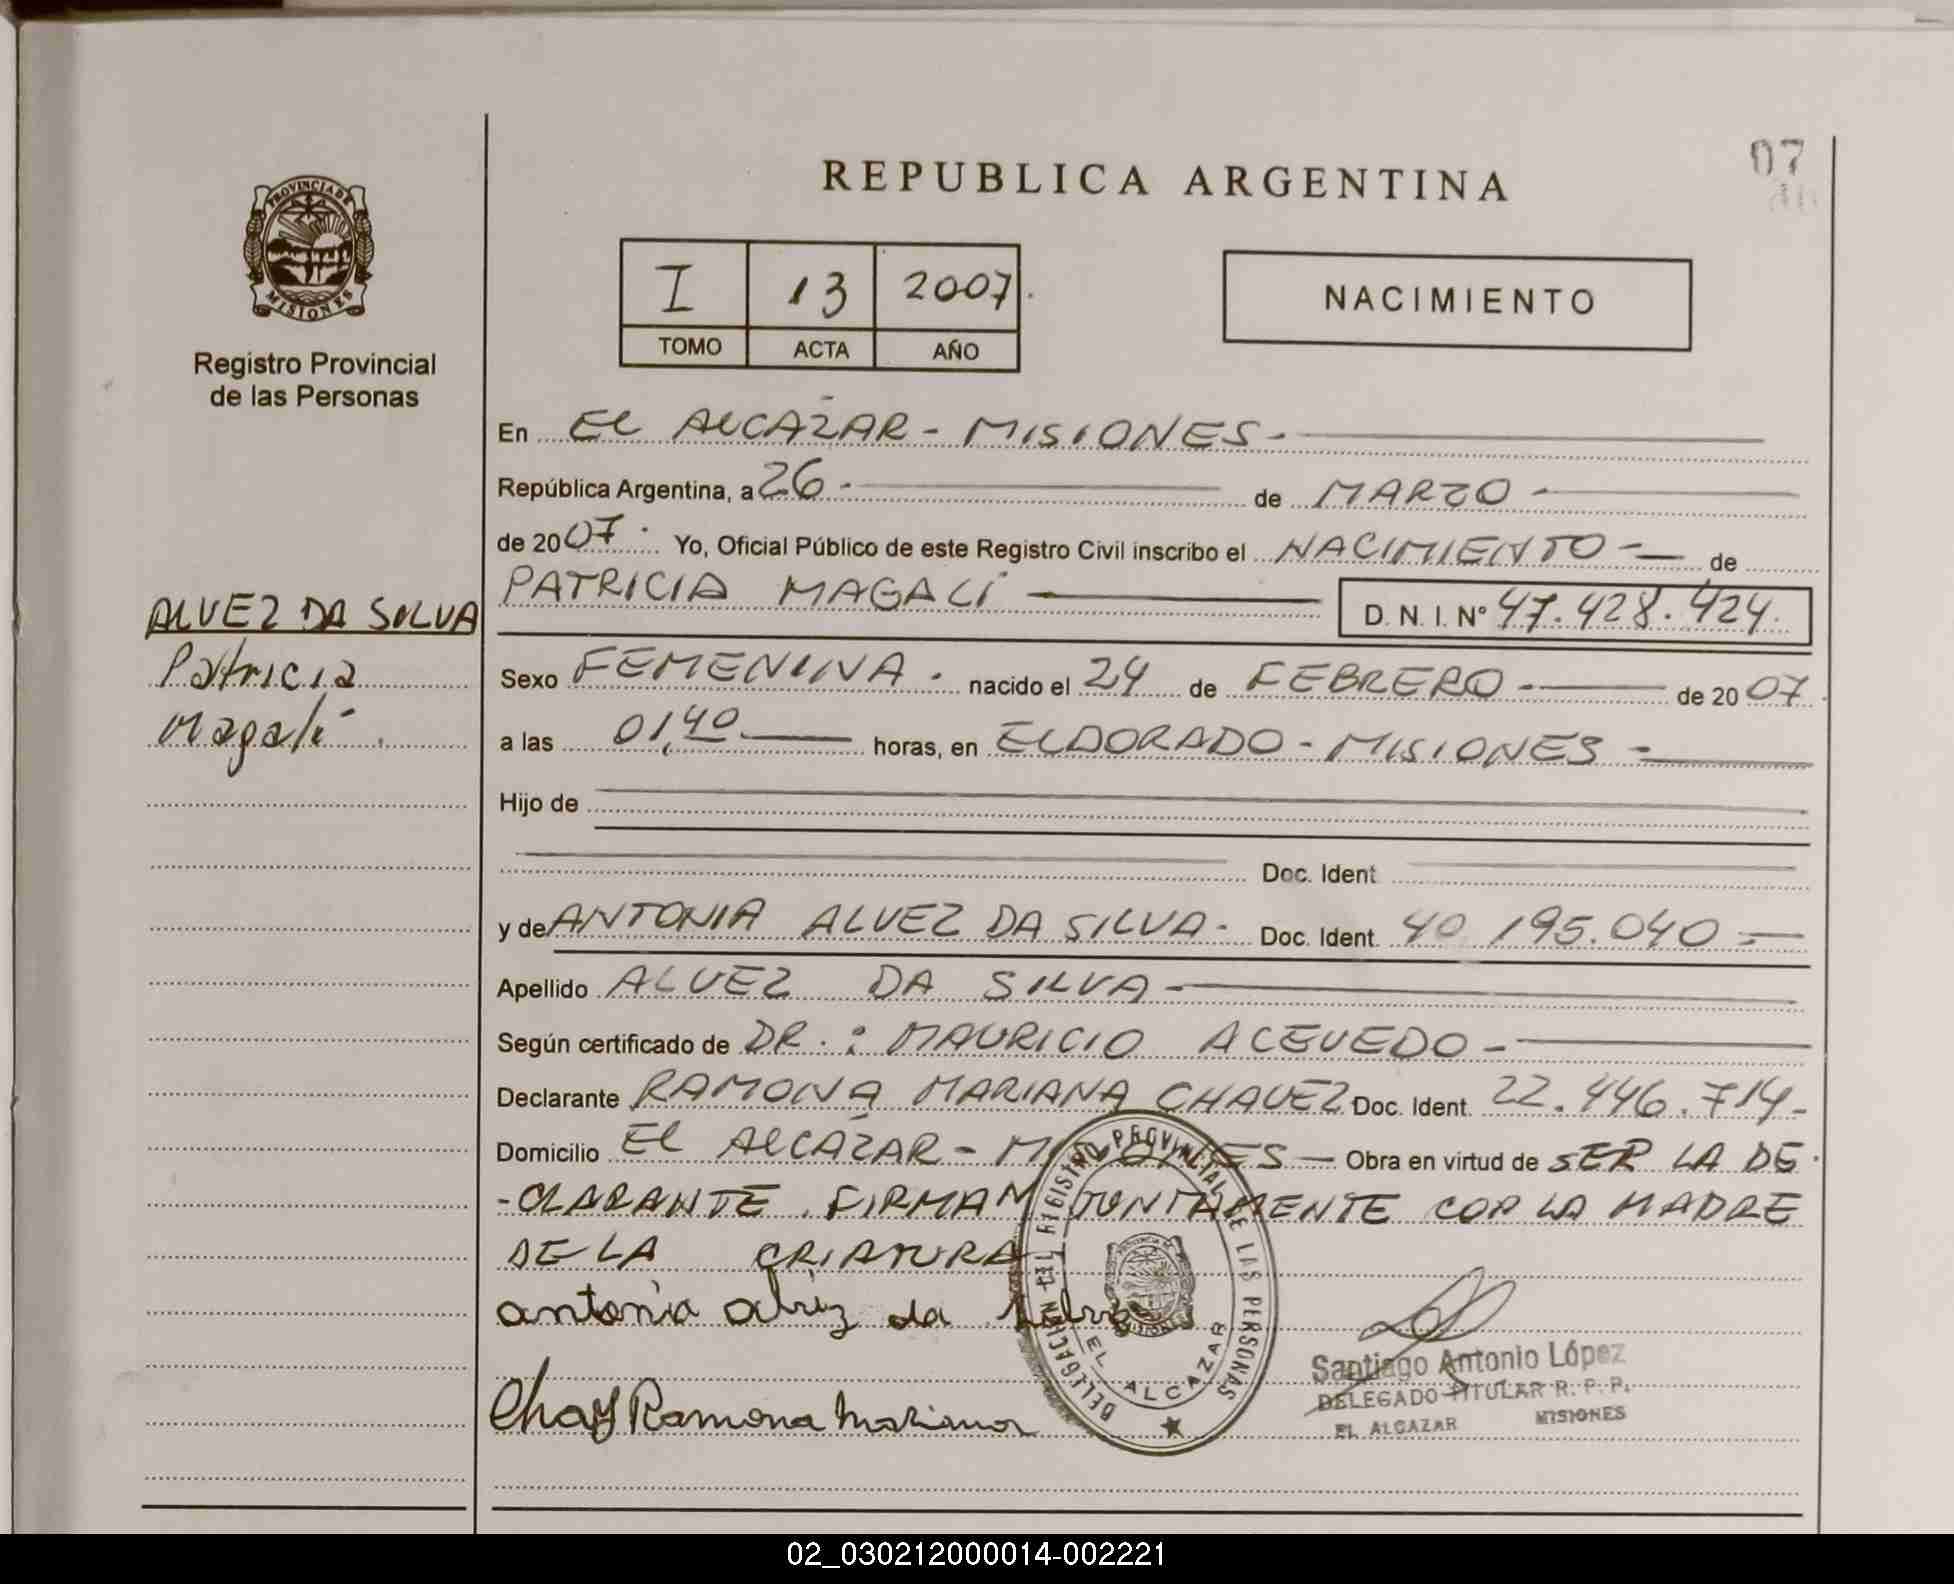 REPUBLICA ARGENTINA
07
PROVINCIA DE
MISIONES
Registro Provincial
de las Personas
I 13 2007
TOMO ACTA AÑO
NACIMIENTO
En EL ALCAZAR - MISIONES -
República Argentina, a 26 - de MARZO -
de 2007. Yo, Oficial Público de este Registro Civil inscribo el NACIMIENTO - de
PATRICIA MAGALÍ D. N. I. Nº 47.428.424.
ALVEZ DA SILVA
Patricia
Magalí
Sexo FEMENINA. nacido el 24 de FEBRERO - de 2007.
a las 01,40 horas, en ELDORADO - MISIONES -
Hijo de
Doc. Ident.
y de ANTONIA ALVEZ DA SILVA - Doc. Ident. 40.195.040 -
Apellido ALVEZ DA SILVA -
Según certificado de DR.: MAURICIO ACEVEDO -
Declarante RAMONA MARIANA CHAVEZ Doc. Ident. 22.446.714-
Domicilio EL ALCAZAR - MISIONES - Obra en virtud de SER LA DE
-CLARANTE. FIRMAN JUNTAMENTE CON LA MADRE
DE LA CRIATURA
antonia alvez da silva
Chav Ramona Mariana
DELEGACION DEL REGISTRO PROVINCIAL DE LAS PERSONAS
EL ALCAZAR
Santiago Antonio López
DELEGADO TITULAR R. P. P.
EL ALCAZAR MISIONES
02_030212000014-002221